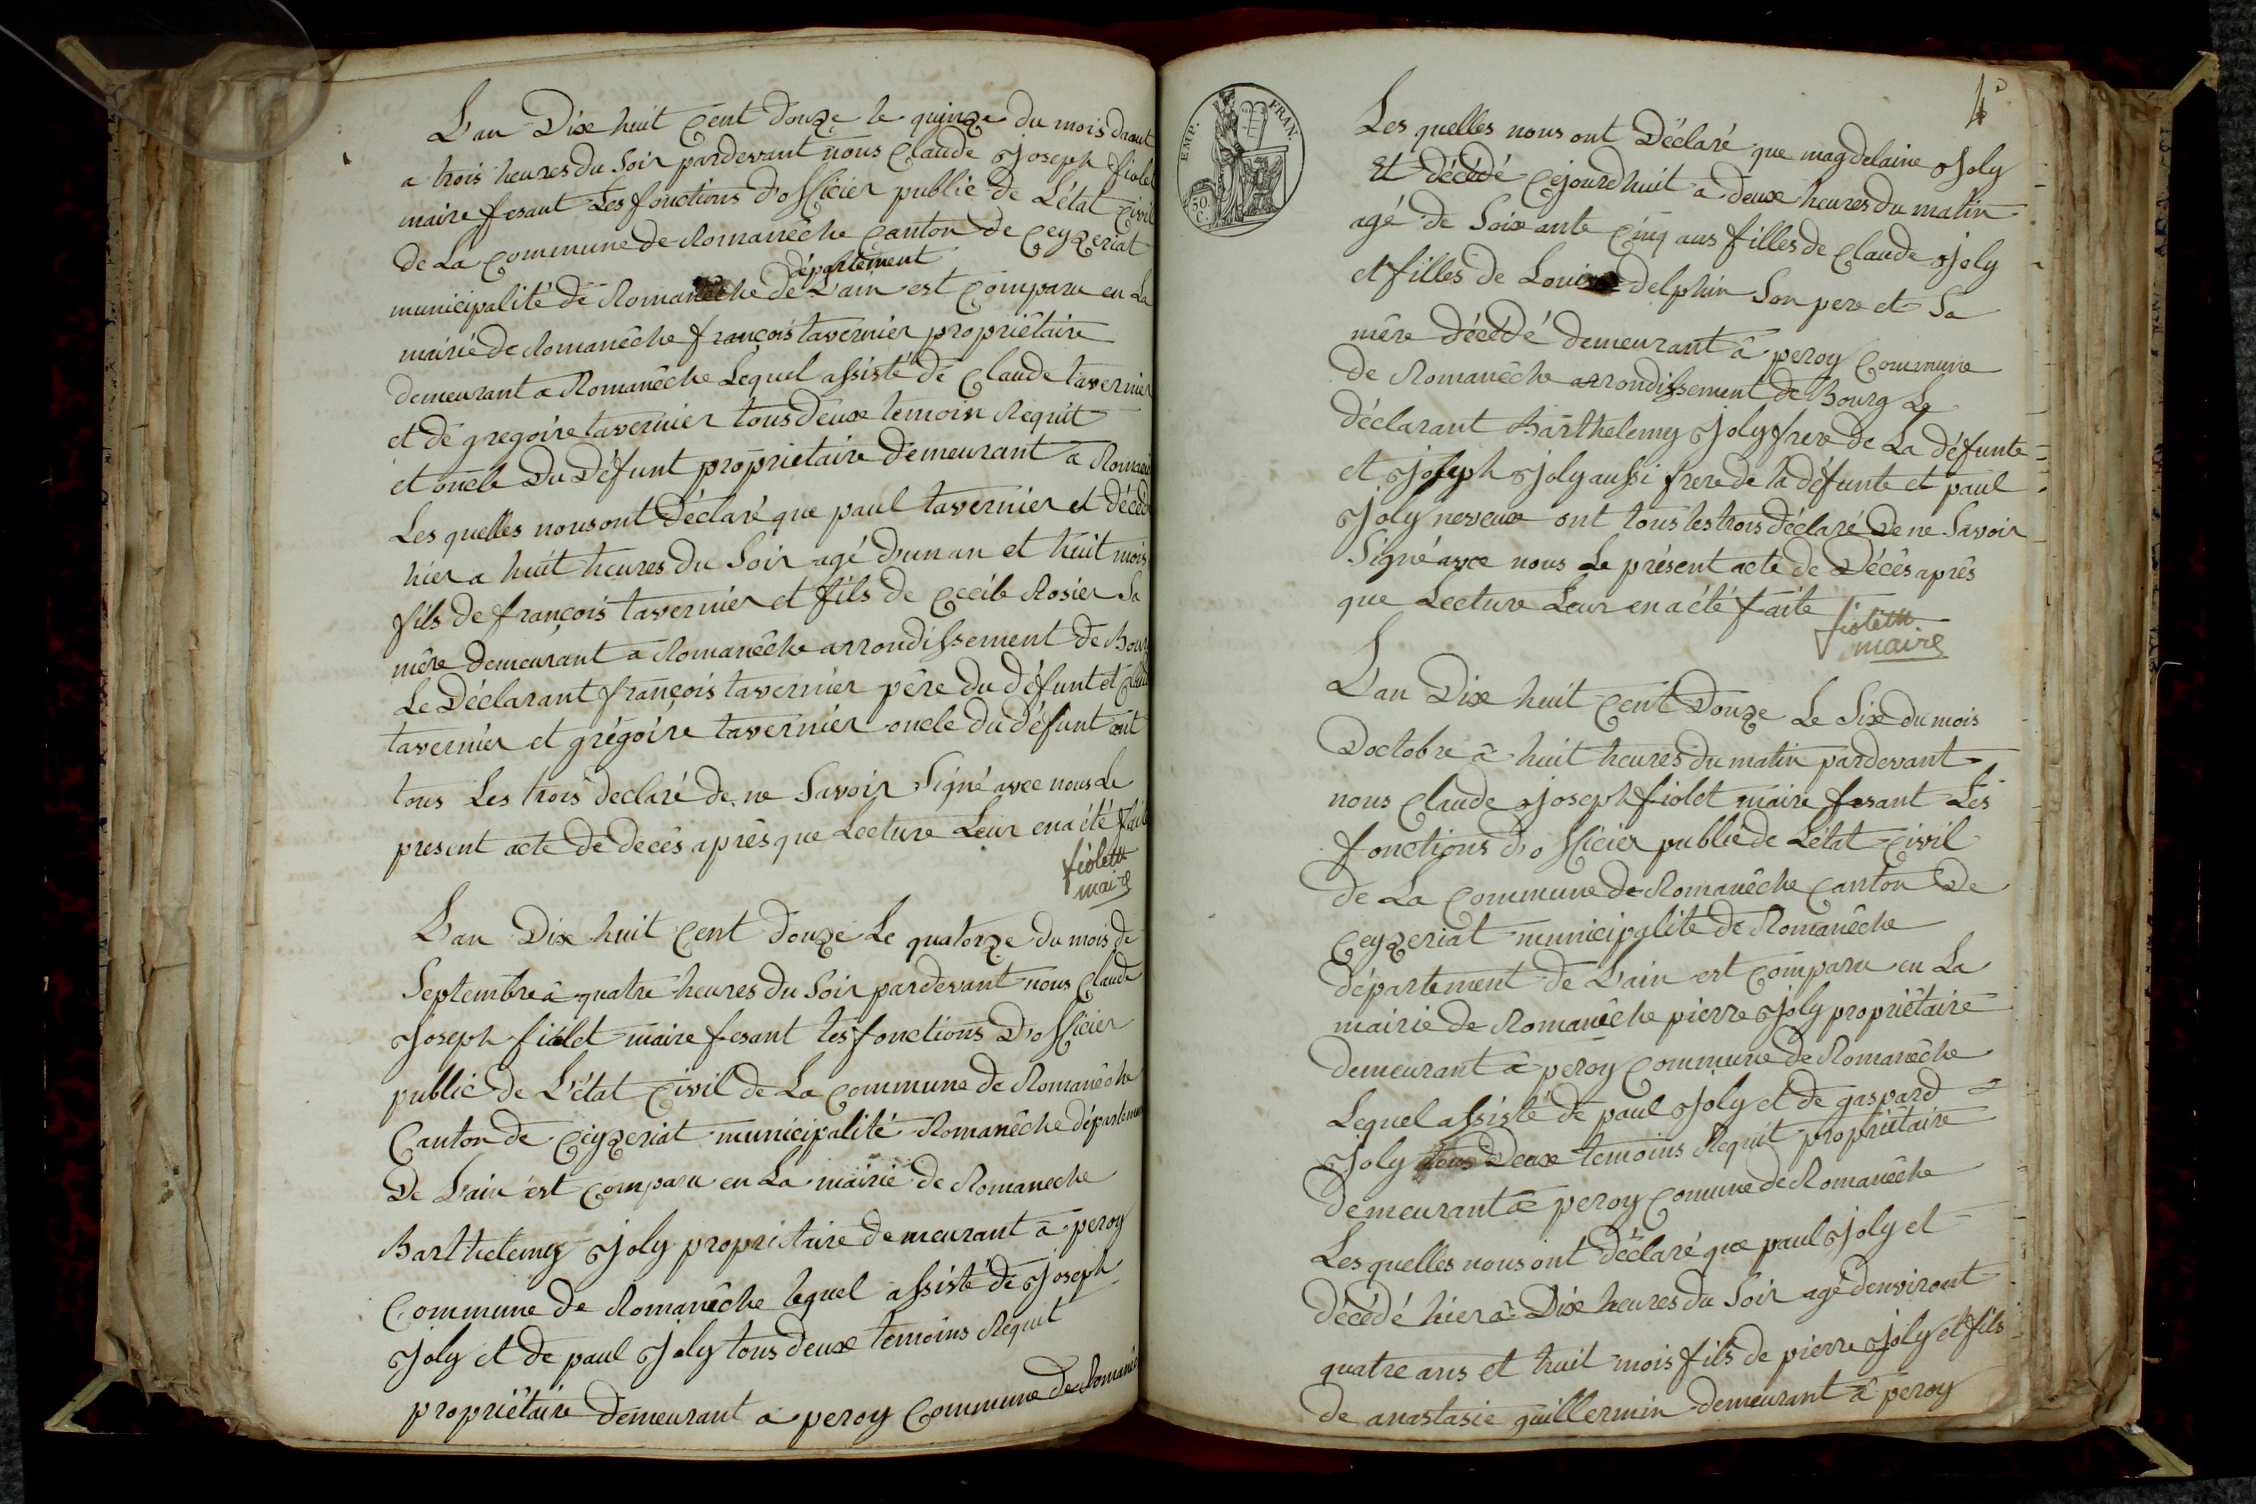 L'an Dix huit Cent Douze le quinze du mois daout
a trois heures du Soir pardevant nous Claude Joseph fiolet
maire fesant Les fonctions d'officier public de L'état Civil
de La Commune de Romanêche Canton de Ceyzeriat
département
municipalité de Romanêche de L'ain est Comparu en La
mairie de Romanêche françois tavernier propriêtaire
demeurant a Romanêche Lequel assisté de Claude tavernier
et de gregoire tavernier tous deux temoin Requit
et oncle Du Défunt propriétaire demeurant a Romanê
Les quelles nous ont Déclaré que paul tavernier et décédé
hier a huit heures du Soir agé d'un an et huit mois
fils de françois tavernier et fils de Cecile Rosier Sa
mêre demeurant a Romanêche arrondissement de Bourg
Le Déclarant françois tavernier pêre du défunt et Claude
tavernier et grégoire tavernier oncle du défunt ont
tous Les trois declaré de ne Savoir Signé avec nous Le
present acte de decês aprês que Lecture Leur en a été faite
fiolet
maire
L'an Dix huit Cent Douze Le quatorze du mois de
Septembre â quatre heures du Soir pardevant nous Claude
Joseph fiolet maire fesant les fonctions D'officier
public de L'état Civil de La Commune de Romanêche
Canton de Ceyzeriat municipalité Romanêche départemen
De L'ain est Comparu en La mairie de Romaneche
Barthelemy Joly propriêtaire demeurant â peroy
Commune de Romanêche lequel assisté de Joseph
Joly et de paul Joly tous deux temoins Requit
propriêtaire demeurant a peroy Commune de Romanê
4e
EMP. FRAN.
50.
C.
Les quelles nous ont Déclaré que magdelaine Joly
Et décédé Cejourdhuit a deux heures du matin
agé de Soixante Cinq ans filles de Claude Joly
et filles de Louise delphin Son pere et Sa
mêre décédé demeurant â peroy Commune
de Romanêche arrondissement de Bourg Le
déclarant Barthelemy Joly frere de La défunte
et Joseph Joly aussi frere de la défunte et paul
Joly neveux ont tous les trois déclaré De ne Savoir
Signé avec nous Le présent acte de Décês aprês
que Lecture Leur en a été faite
fiolet
maire
L'an Dix huit Cent Douze Le Six du mois
Doctobre â huit heures du matin pardevant
nous Claude Joseph fiolet maire fesant Les
fonctions d'officier public de L'état Civil
de La Commune de Romanêche Canton De
Ceyzeriat municipalité de Romanêche
département de L'ain est Comparu en La
mairie de Romanêche pierre Joly propriêtaire
demeurant â peroy Commune de Romanêche
Lequel assisté de paul Joly et de gaspard
Joly tous Deux temoins Requit propriêtaire
demeurant â peroy Comune de Romanêche
Les quelles nous ont Déclaré que paul Joly et
décédé hier â Dix heures du Soir agé denviront
quatre ans et huit mois fils de pierre Joly et fils
de anastasie guillermin demeurant â peroy